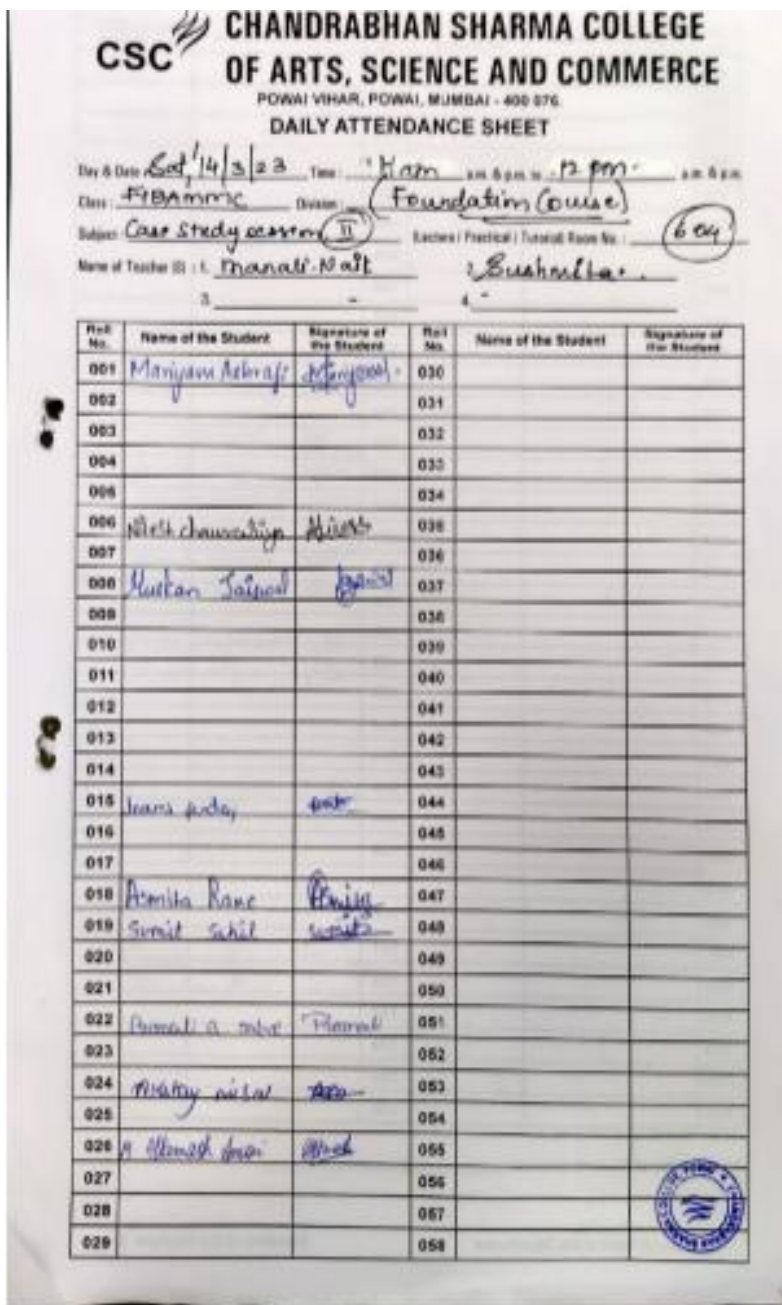 CSC
CHANDRABHAN SHARMA COLLEGE
OF ARTS, SCIENCE AND COMMERCE
POWAI VIHAR, POWAI, MUMBAI - 400 076.
DAILY ATTENDANCE SHEET
Day & Date Sat, 14/3/23 Time : 11 am a.m. & p.m. to 12 pm. a.m. & p.m.
Class : FYBAMMC Division : (Foundation Course)
Subject : Case Study session II Lecture / Practical / Tutorial Room No. : 604
Name of Teacher (S) : 1. Manali Naik 2. Sushmita.
3. - 4. -
Roll No. Name of the Student Signature of the Student Roll No. Name of the Student Signature of the Student
001 Mariyam 030
002 031
003 032
004 033
005 034
006 Nilesh 035
007 036
008 Muskan Jaiswal 037
009 038
010 039
011 040
012 041
013 042
014 043
015 044
016 045
017 046
018 Asmita Rane 047
019 Sumit 048
020 049
021 050
022 051
023 052
024 Akshay 053
025 054
026 055
027 056
028 057
029 058